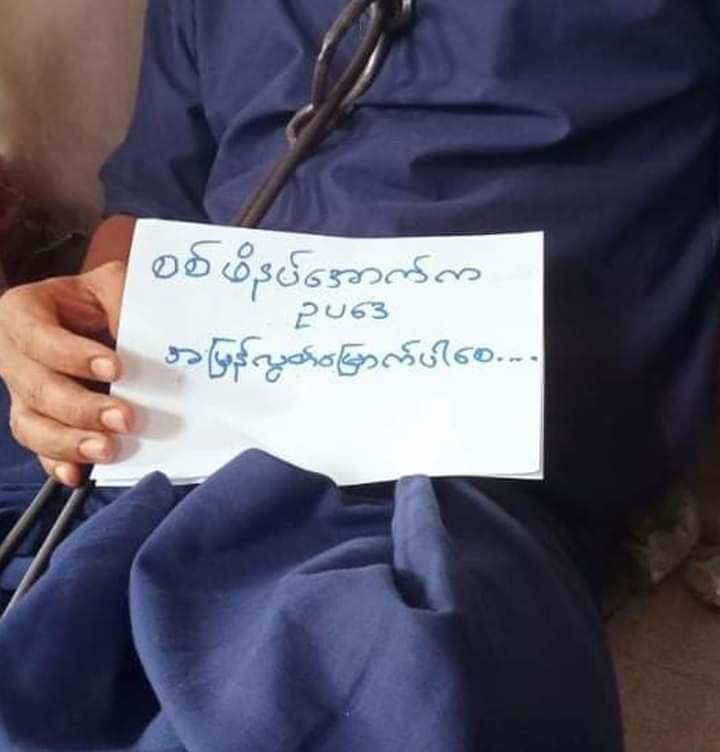 စစ်ဖိနပ်အောက်က
ဥပဒေ
အမြန်လွတ်မြောက်ပါစေ....